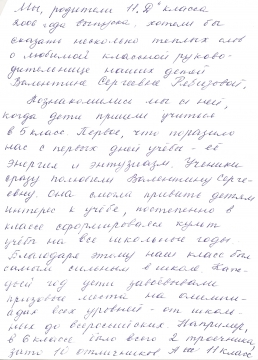 Мы, родители 11 "Д" класса
2006 года выпуска, хотели бы
сказать несколько теплых слов
о любимой классной руково-
дительнице наших детей
Валентине Сергеевне
Познакомились мы с ней,
когда дети пришли учиться
в 5 класс. Первое, что поразило
нас с первых дней учёбы - её
энергия и энтузиазм. Ученики
сразу полюбили Валентину Серге-
евну. Она смогла привить детям
интерес к учёбе, постепенно в
классе сформировался культ
учёбы на все школьные годы.
Благодаря этому наш класс был
самым сильным в школе. Каж-
дый год дети завоёвывали
призовые места на олимпи-
адах всех уровней - от школь-
ных до всероссийских. Например,
в 6 классе было всего 2 троечника,
зато 10 отличников. А 11 класс